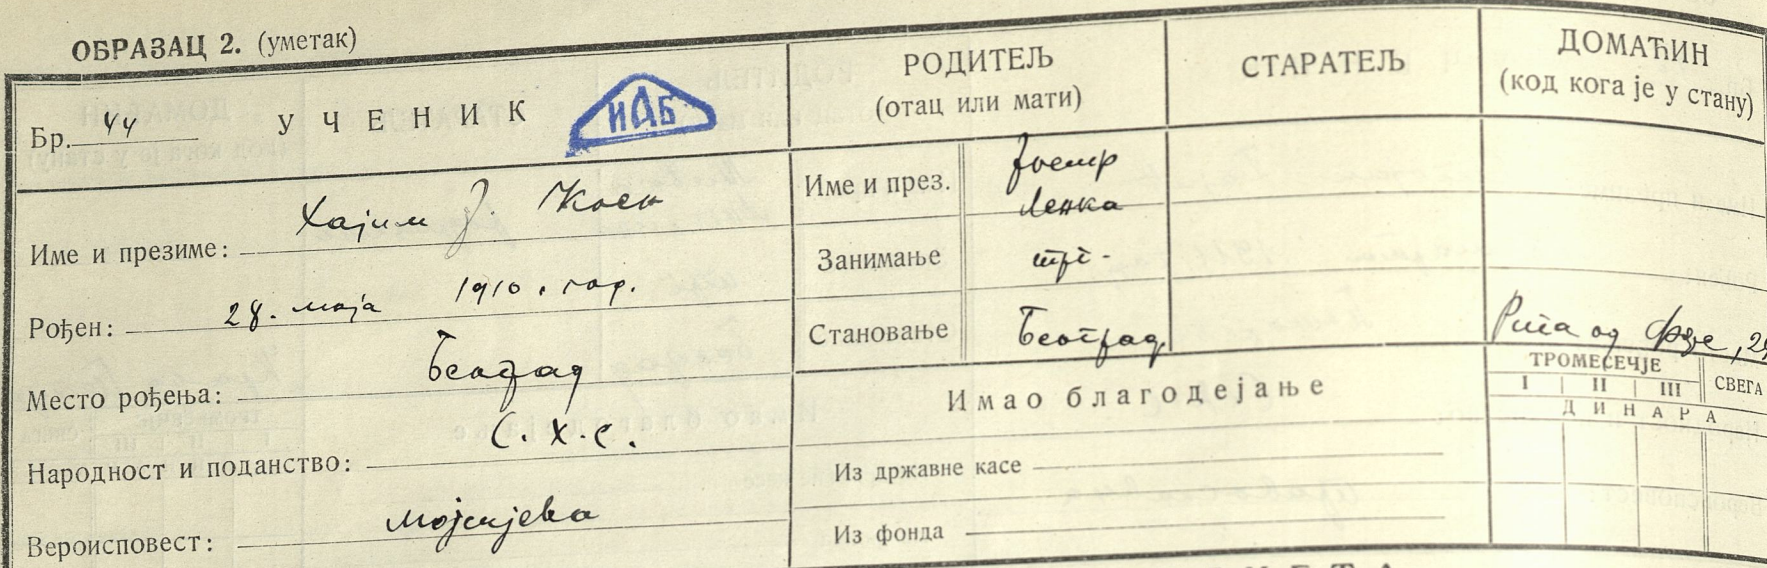 ОБРАЗАЦ 2. (уметак)
Бр. 44 УЧЕНИК
ИАБ
Име и презиме: Хајим Ј. Коен
Рођен: 28. маја 1910. год.
Место рођења: Београд
Народност и поданство: С.Х.С.
Вероисповест: Мојсијева
РОДИТЕЉ
(отац или мати)
СТАРАТЕЉ
ДОМАЋИН
(код кога је у стану)
Име и през. Јосиф
Ленка
Занимање трг.
Становање Београд
Рига од Фере, 2
Имао благодејање
ТРОМЕСЕЧЈЕ
I II III СВЕГА
ДИНАРА
Из државне касе
Из фонда